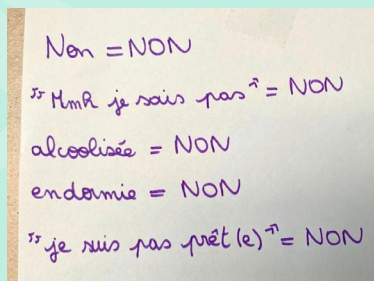 Non = NON
"Mmh je sais pas" = NON
alcoolisée = NON
endormie = NON
"je suis pas prêt(e)" = NON